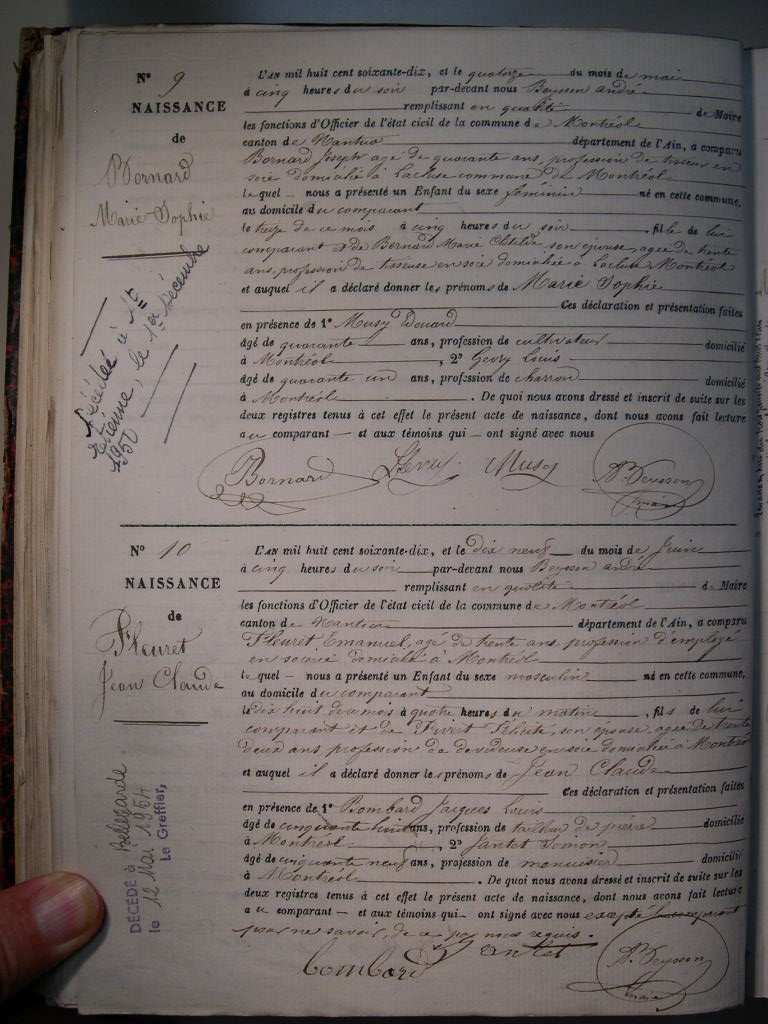 N° 9
NAISSANCE
de
Bernard
Marie Sophie
Décédée à St
Etienne, le 1er Décembre
1950
L'AN mil huit cent soixante-dix, et le quatorze du mois de mai
à cinq heures du soir par-devant nous Beysson andré
remplissant en qualité de Maire
les fonctions d'Officier de l'état civil de la commune de Montréal
canton de Nantua département de l'Ain, a comparu
Bernard Joseph agé de quarante ans, profession de tisseur en
soie domicilié à Lacluse commune de Montréal
lequel nous a présenté un Enfant du sexe féminin né en cette commune,
au domicile du comparant
le treize de ce mois à cinq heures du soir, fille de lui
comparant & de Bernard Marie Clotilde son épouse, agée de trente
ans, profession de tisseuse en soie domiciliée à Lacluse Montréal
et auquel il a déclaré donner les prénoms de Marie Sophie
Ces déclaration et présentation faites
en présence de 1° Musy Edouard
âgé de quarante ans, profession de cultivateur domicilié
à Montréal, 2° Gevry Louis
âgé de quarante un ans, profession de charron domicilié
à Montréal. De quoi nous avons dressé et inscrit de suite sur les
deux registres tenus à cet effet le présent acte de naissance, dont nous avons fait lecture
au comparant et aux témoins qui ont signé avec nous
Bernard Musy A. Beysson
maire
N° 10
NAISSANCE
de
Fleuret
Jean Claude
DÉCÉDÉ à Bellegarde
le 12 Mai 1954
Le Greffier,
L'AN mil huit cent soixante-dix, et le dix neuf du mois de Juin
à cinq heures du soir par-devant nous Beysson andré
remplissant en qualité de Maire
les fonctions d'Officier de l'état civil de la commune de Montréal
canton de Nantua département de l'Ain, a comparu
Fleuret Emanuel, agé de trente ans profession d'employé
en soierie domicilié à Montréal
lequel nous a présenté un Enfant du sexe masculin né en cette commune,
au domicile du comparant
le dix huit du mois à quatre heures du matin, fils de lui
comparant et de son épouse, agée de trente
deux ans profession de devideuse en soie domiciliée à Montréal
et auquel il a déclaré donner les prénoms de Jean Claude
Ces déclaration et présentation faites
en présence de 1° Bombard Jacques Louis
âgé de cinquante huit ans, profession de tailleur de pierre domicilié
à Montréal, 2° Jantet
âgé de cinquante neuf ans, profession de menuisier domicilié
à Montréal. De quoi nous avons dressé et inscrit de suite sur les
deux registres tenus à cet effet le présent acte de naissance, dont nous avons fait lecture
au comparant et aux témoins qui ont signé avec nous excepté le comparant
pour ne savoir, de ce par nous requis.
Bombard Jantet A. Beysson
maire